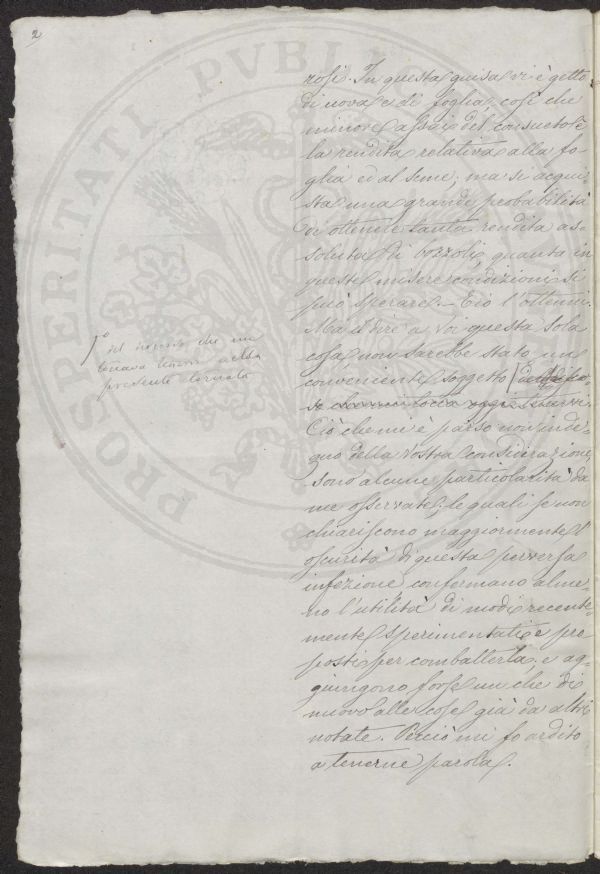 2
zosi. In questa guisa vi è getto
di uova e di foglia, così che
minore assai del consueto è
la rendita relativa alla fo-
glia ed al seme; ma si acqui-
sta una grande probabilità
di ottenere tanta rendita as-
soluta di bozzoli, quanta in
queste misere condizioni si
può sperare. - E io l'ottenni.
Ma il dire a Voi questa sola
cosa, non sarebbe stato un
conveniente soggetto
Ciò che mi è parso non inde-
gno della Vostra considerazione,
sono alcune particolarità da
me osservate, le quali se non
chiariscono maggiormente l'
oscurità di questa perversa
infezione, confermano alme-
no l'utilità di modi recente-
mente sperimentati e pro-
posti per combatterla, e ag-
giungono forse un che di
nuovo alle cose già da altri
notate. Perciò mi fo ardito
a tenerne parola.
del che me
presente tornata
PROSPERITATI PVBLICAE